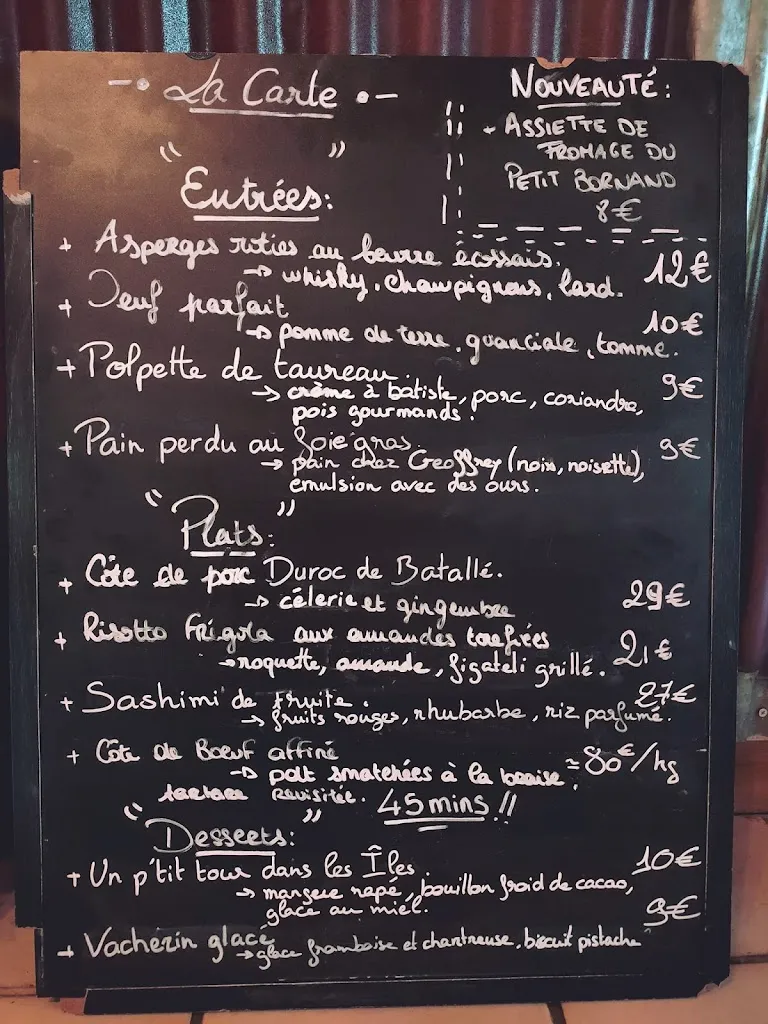 La Carte
NOUVEAUTÉ :
+ ASSIETTE DE
FROMAGE DU
PETIT BORNAND
8€
" Entrées: "
+ Asperges roties au beurre écossais.
→ whisky, champignons, lard. 12€
+ Oeuf parfait 10€
→ pomme de terre, guanciale, tomme.
+ Polpette de taureau. 9€
→ crème à batiste, porc, coriandre,
pois gourmands.
+ Pain perdu au foie gras. 9€
→ pain chez Geoffrey (noix, noisette),
emulsion avec des ours.
" Plats: "
+ Côte de porc Duroc de Batallé.
→ célerie et gingembre 29€
+ Risotto Frigola aux amandes torefiées
→ roquette, amande, figateli grillé. 21€
+ Sashimi de truite. 27€
→ fruits rouges, rhubarbe, riz parfumé.
+ Côte de Boeuf affiné
→ patt smatchées à la braise, ≈ 80€/kg
tartare revisitée. 45mins !!
" Desserts: "
+ Un p'tit tour dans les Îles. 10€
→ mangue rapé, bouillon froid de cacao,
glace au miel. 9€
+ Vacherin glacé
→ glace framboise et chartreuse, biscuit pistache